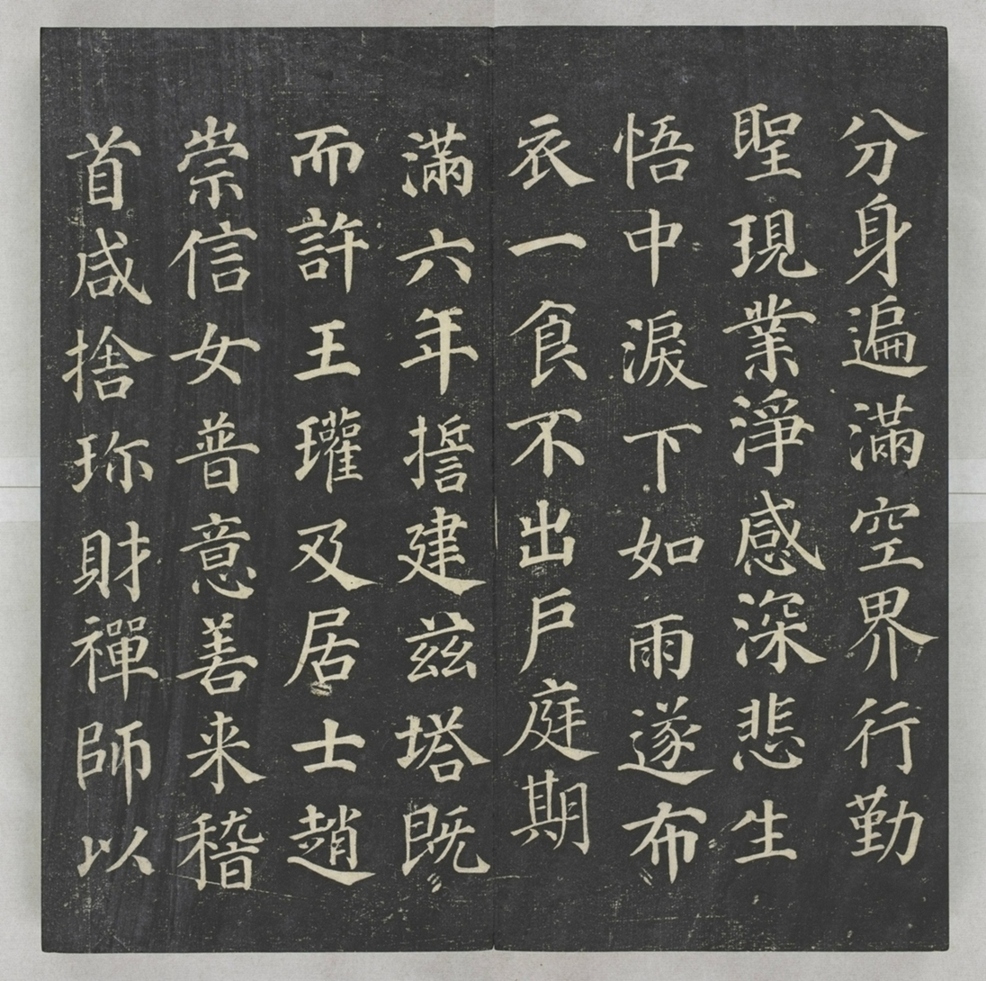 分身遍滿空界行勤
聖現業淨感深悲生
悟中淚下如雨遂布
衣一食不出戶庭期
滿六年誓建茲塔既
而許王瓘及居士趙
崇信女普意善来稽
首咸捨珎財禪師以